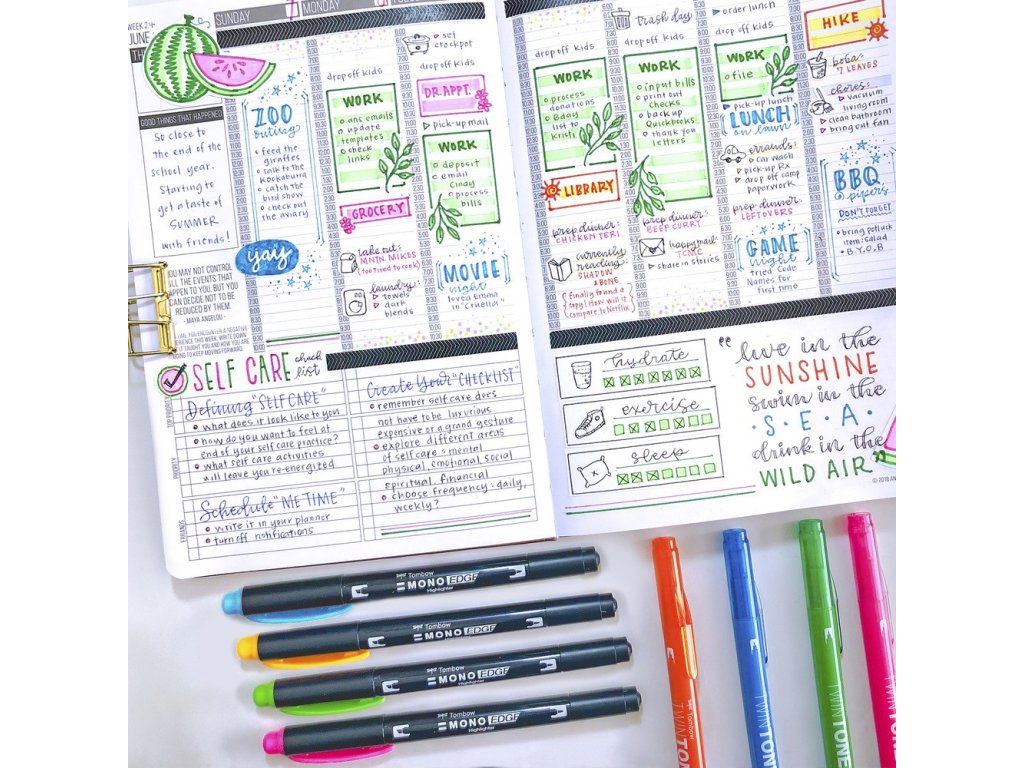 WEEK 24
JUNE
SUNDAY
MONDAY
GOOD THINGS THAT HAPPENED
So close to
the end of the
school year.
Starting to
get a taste of
SUMMER
with friends!
YOU MAY NOT CONTROL
ALL THE EVENTS THAT
HAPPEN TO YOU, BUT YOU
CAN DECIDE NOT TO BE
REDUCED BY THEM.
- MAYA ANGELOU -
YOU ENCOUNTER A NEGATIVE
THIS WEEK, WRITE DOWN
IT TAUGHT YOU AND HOW YOU ARE
GOING TO KEEP MOVING FORWARD.
ZOO
outing
feed the
giraffes
talk to the
kookaburra
catch the
bird show
check out
the aviary
yay
drop off kids
WORK
ans emails
update
templates
check
links
GROCERY
take out:
MNTN. MIKES
(too tired to cook)
laundry:
towels
dark
blends
set
crockpot
drop off kids
DR. APPT.
pick-up mail
WORK
deposit
email
Cindy
process
bills
MOVIE
night
loved Emma
in "Cruella"
drop off kids
WORK
process
donations
Bday
list to
Kristi
LIBRARY
prep dinner:
CHICKEN TERI.
currently
reading:
SHADOW
& BONE
(Finally found a
copy! How will it
compare to Netflix)
trash day
drop off kids
WORK
input bills
print out
checks
backup
Quickbooks
thank you
letters
prep dinner:
BEEF CURRY
happy mail:
TCMC
share in stories
order lunch
drop off kids
WORK
file
pick-up lunch
LUNCH
on lawn
errands:
car wash
pick-up Rx
drop off camp
paperwork
prep dinner:
LEFTOVERS
GAME
night
tried Code
Names for
first time
HIKE
boba:
7 LEAVES
chores:
vacuum
living room
clean bathroom
bring out fan
BBQ
pipers
DON'T FORGET
bring potluck
item: salad
B.Y.O.B
SELF CARE check list
TOP PRIORITY
PRIORITY
ERRANDS
Defining "SELF CARE"
what does it look like to you
how do you want to feel at
end of your self care practice?
what self care activities
will leave you re-energized
Schedule "ME TIME"
write it in your planner
turn off notifications
Create Your "CHECKLIST"
remember self care does
not have to be luxurious
expensive or a grand gesture
explore different areas
of self care: mental
physical, emotional, social
spiritual, financial
choose frequency: daily,
weekly?
hydrate
exercise
sleep
"live in the
SUNSHINE
swim in the
· S · E · A ·
drink in the
WILD AIR"
© 2018
Tombow
MONO EDGE
Highlighter
Tombow
MONO EDGE
Highlighter
Tombow
MONO EDGE
Highlighter
Tombow
MONO EDGE
Highlighter
Tombow
TWINTONE
TWINTONE
TWINTONE
TWINTONE